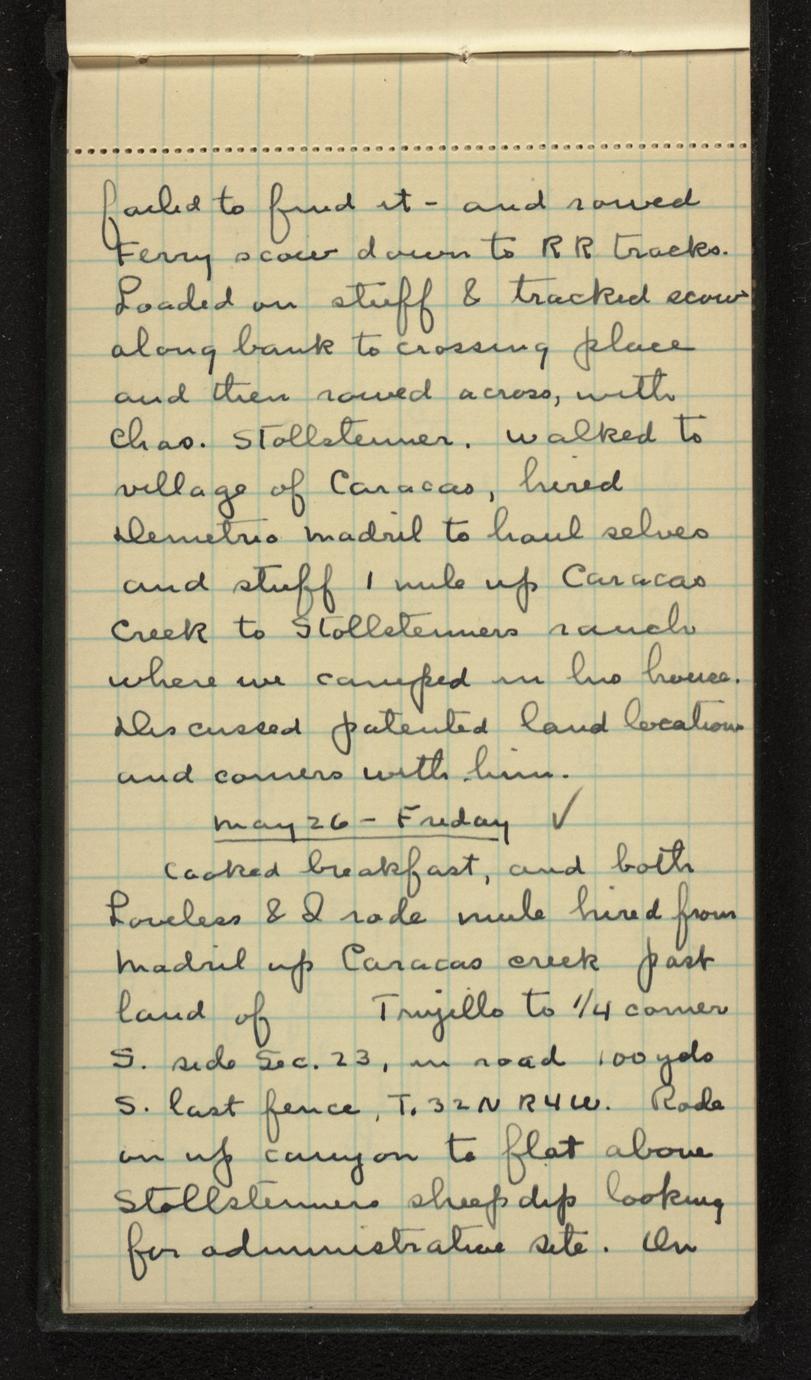 failed to find it - and rowed
Ferry scow down to RR tracks.
Loaded on stuff & tracked scow
along bank to crossing place
and then rowed across, with
Chas. Stollsteimer. Walked to
village of Caracas, hired
Demetrio Madril to haul selves
and stuff 1 mile up Caracas
Creek to Stollsteimers ranch
where we camped in his house.
Discussed patented land locations
and corners with him.
May 26 - Friday ✓
Cooked breakfast, and both
Loveless & I rode mule hired from
Madril up Caracas creek past
land of Trujillo to 1/4 corner
S. side Sec. 23, in road 100 yds
S. last fence, T. 32 N R4W. Rode
on up canyon to flat above
Stollsteimers sheep dip looking
for administrative site. On